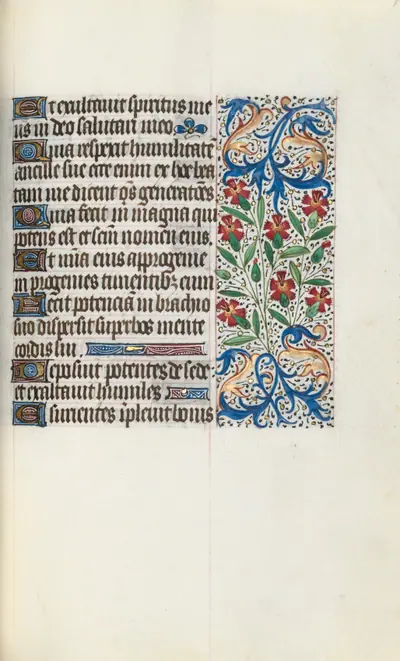 Et exultavit spiritus me
us in deo salutari meo
Quia respexit humilitatē
ancille sue ecce enim ex hoc bea
tam me dicent oēs generatiōes
Quia fecit mi magna qui
potens est et scm̄ nomen eius.
Et mīa eius a progenie
in progenies timentibꝫ eum
Fecit potenciam in brachio
suo dispersit superbos mente
cordis sui
Deposuit potentes de sede
et exaltavit humiles
Esurientes ip̄levit bonis